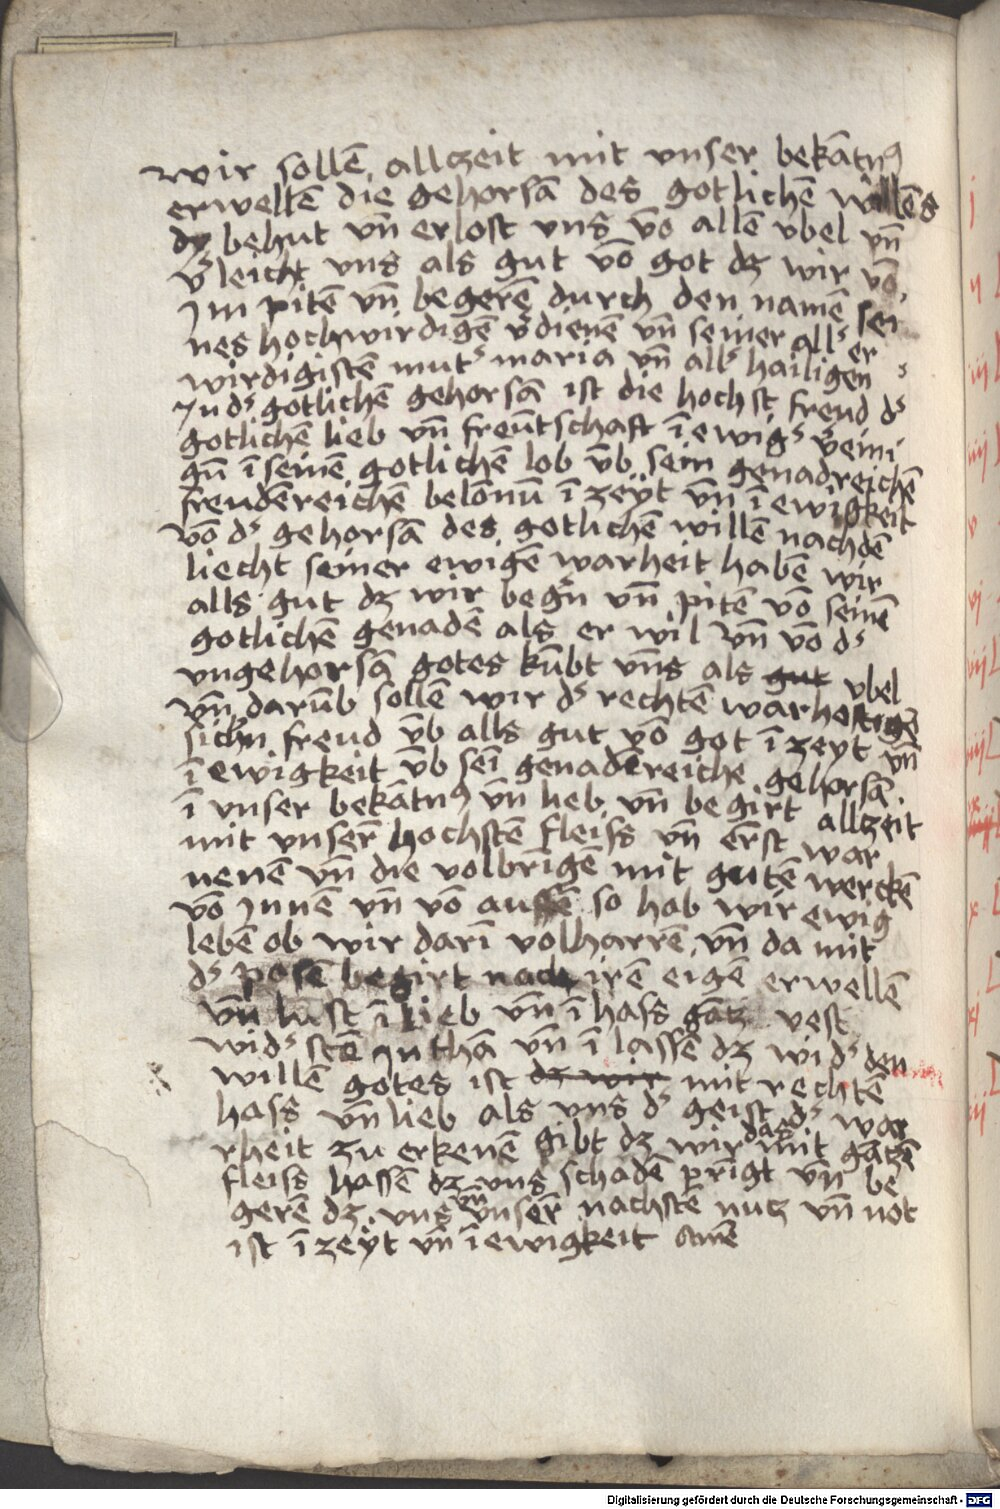 wir sollē allzeit mit vnser bekātnꝰ
erwellē die gehorsā des gotlichē willēs
dz behut vn̄ erlost vns vō allē vbel vn̄
v̓leicht vns als gut vō got dz wir vō
Jm pitē vn̄ begerē durch den namē sei
nes hochwirdigē v̓dienē vn̄ seiner all̓ er
wirdigistē mut̓ maria vn̄ all̓ hailigen
Jn d̓ gotlichē gehorsā ist die hochst freud d̓
gotlichē lieb vn̄ freūtschaft ī ewig̓ v̓eini
gū ī seinē gotlichē lob vn̄b sein genadreichē
freudēreichē belōnū ī zeÿt vn̄ ī ewigkeit
vō d̓ gehorsā des gotlichē willē nachdē
liecht seiner ewigē warheit habē wir
alls gut dz wir begn̄ vn̄ pitē vō seinē
gotlichē genadē als er wil vn̄ vō d̓
vngehorsā gotes kūbt vn̄s als gut vbel
vn̄ darūb sollē wir d̓ rechtē warhoftigē
sichn freud vn̄b alls gut vō got ī zeyt vn̄
ī ewigkeit vn̄b sei̅ genadēreiche gehorsā
ī vnser bekātnꝰ vn̄ lieb vn̄ begirt allzeit
mit vnser̄ hochstē fleiss vn̄ ērst war
nenē vn̄ die volbrīgē mit gutē werckē
vō Jnnē vn̄ vō aussē so hab wir ewig
lebē ob wir darī volharrē vn̄ da mit
d̓ posē begirt nach irē eigē erwellē
vn̄ lust ī lieb vn̄ ī hass gātz vest
wid̓ stē Jn thā vn̄ ī lassē dz wid̓ den
willē gotes ist dz wir mit rechtē
hass vn̄ lieb als vns d̓ geist d̓ war
rheit zu erkenē gibt dz wir das mit gātzē
fleiss hassē dz vns schadē prīgt vn̄ be
gerē dz vns vn̄ vnser̄ nachstē nutz vn̄ not
ist ī zeÿt vn̄ ī ewigkeit amē
Digitalisierung gefördert durch die Deutsche Forschungsgemeinschaft - DFG